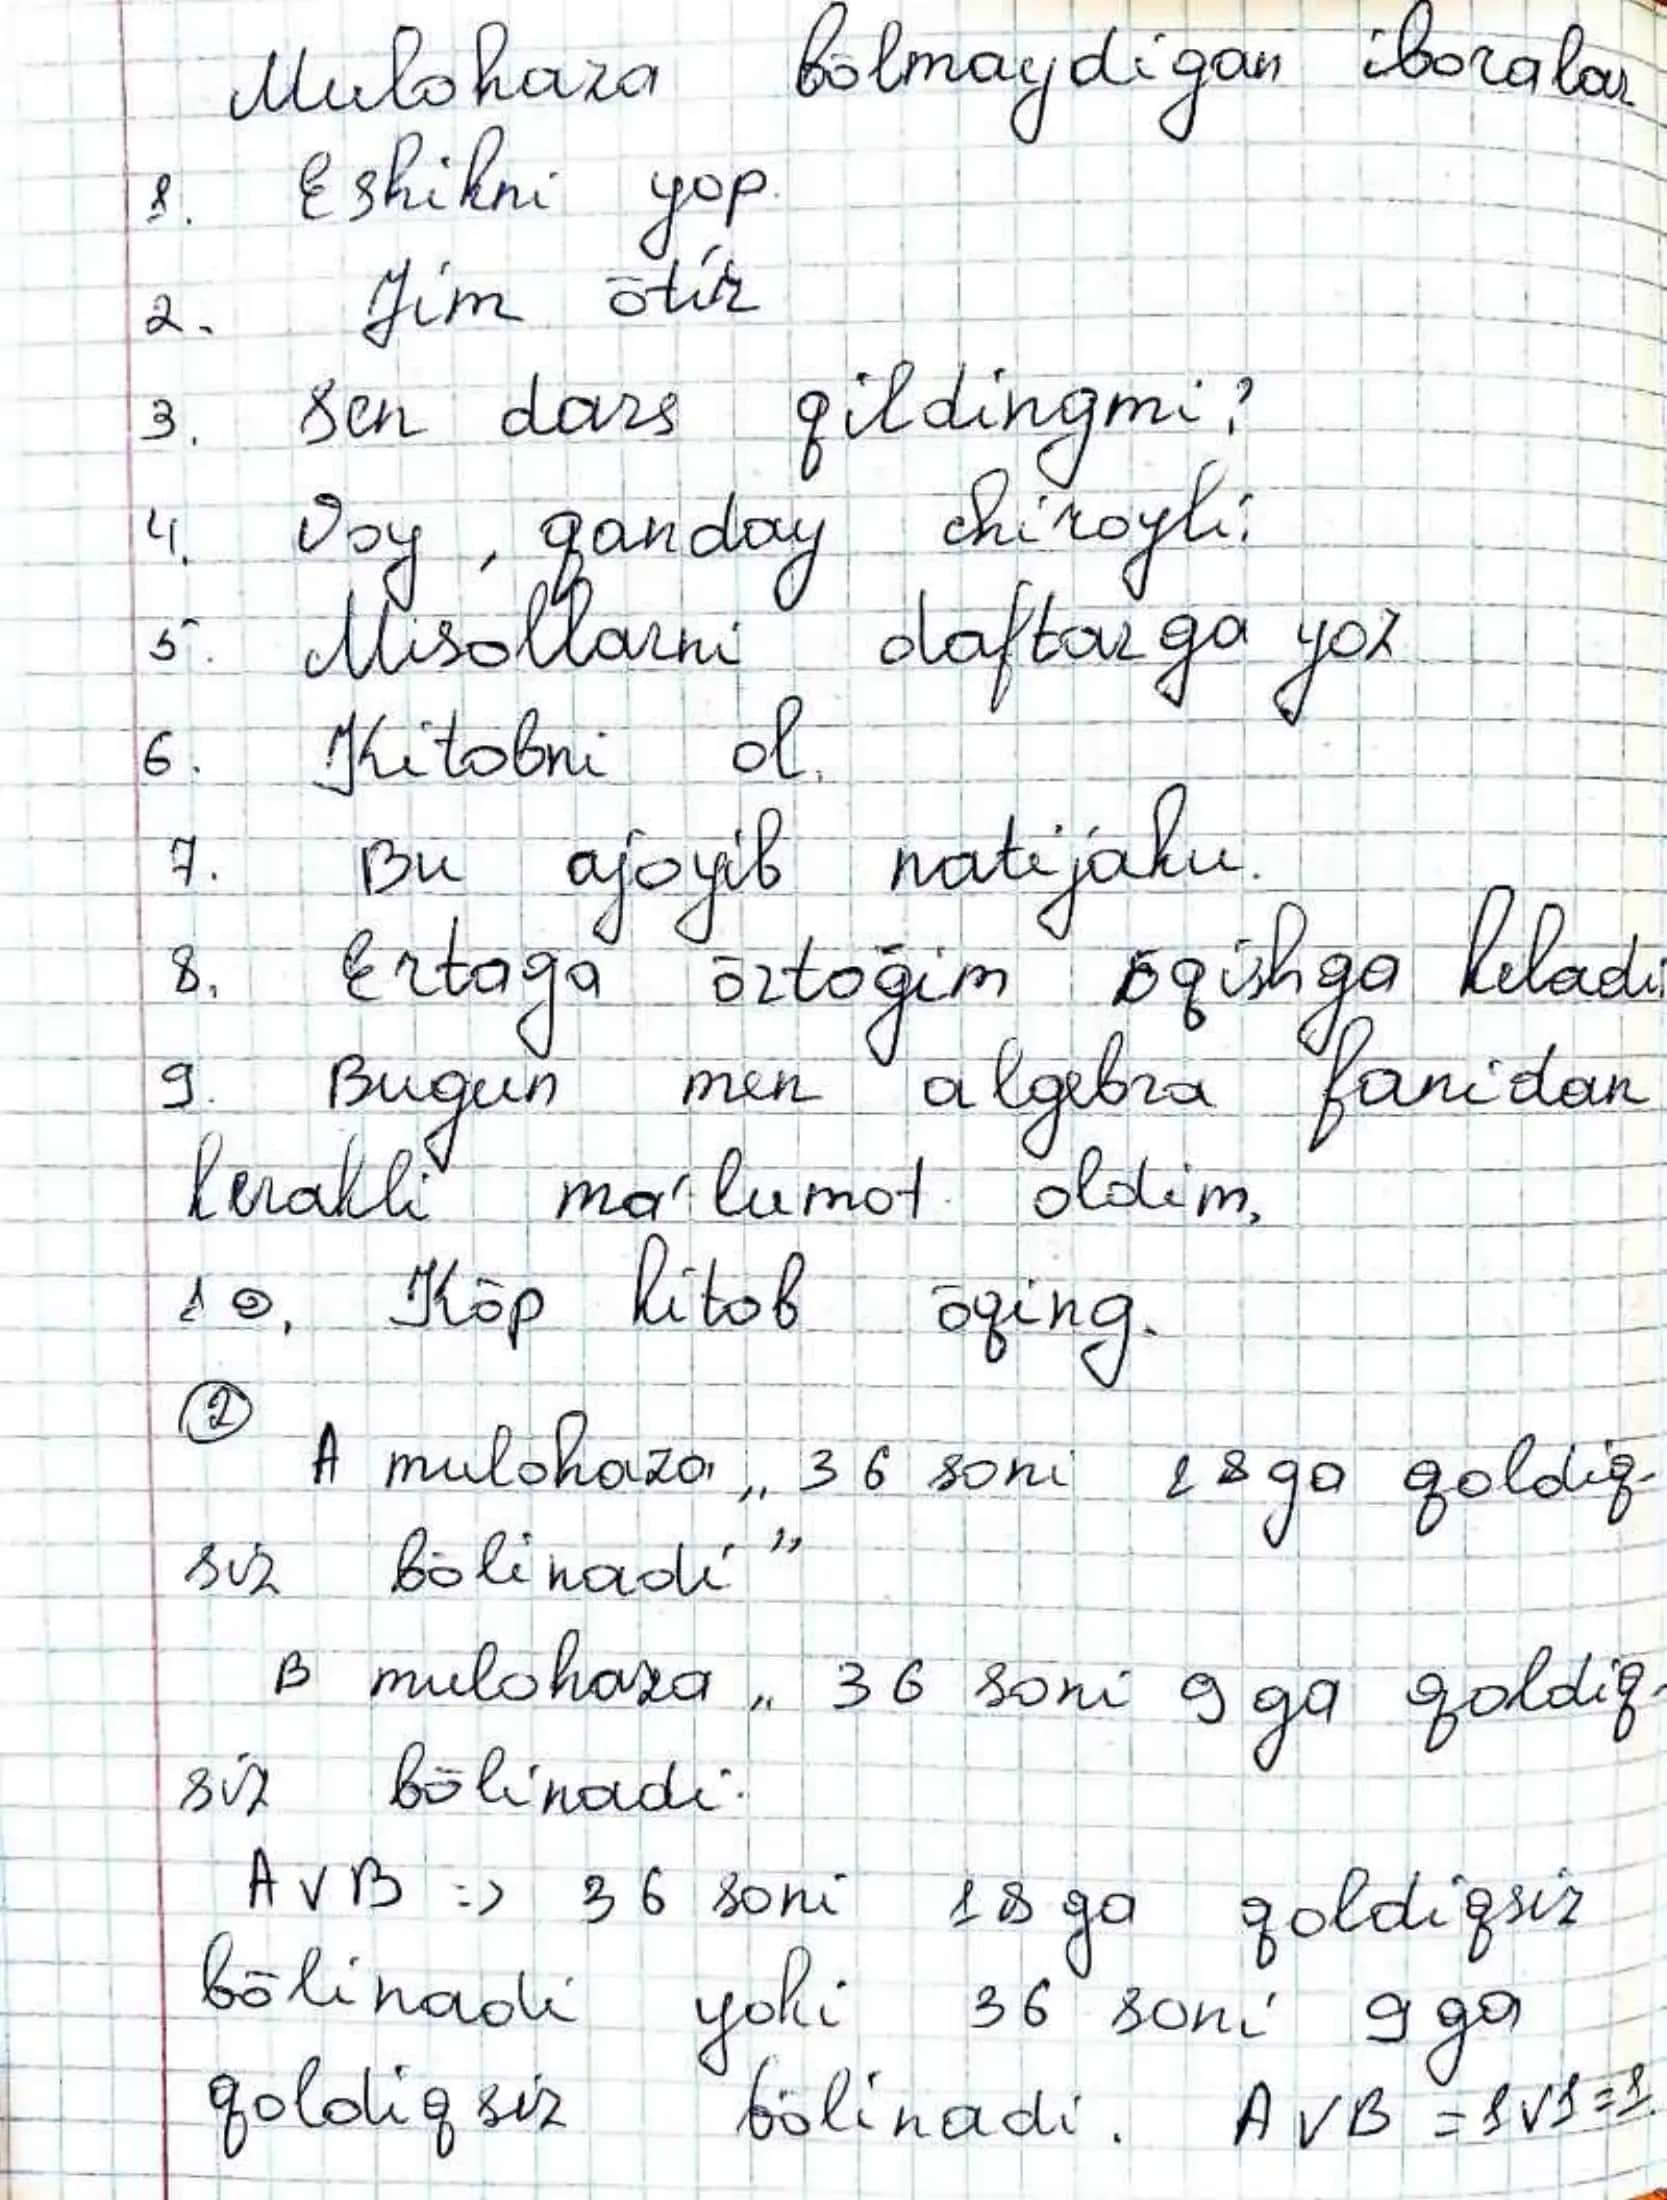 Mulohaza bōlmaydigan iboralar
1. Eshikni yop.
2. Jim ōtir
3. Sen dars qildingmi?
4. Voy, qanday chiroyli!
5. Misollarni daftarga yoz
6. Kitobni ol.
7. Bu ajoyib natijaku.
8. Ertaga ōrtoḡim ōqishga keladi.
9. Bugun men algebra fanidan
kerakli ma'lumot oldim.
10. Kōp kitob ōqing.
②
A mulohaza „36 soni 18 ga qoldiq-
siz bōlinadi"
B mulohaza „36 soni 9 ga qoldiq-
siz bōlinadi.
A∨B => 36 soni 18 ga qoldiqsiz
bōlinadi yoki 36 soni 9 ga
qoldiqsiz bōlinadi. A∨B = 1∨1=1.